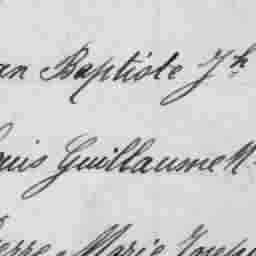 an Baptiste Jh
ouis Guillaume N.
ierre Marie Joseph